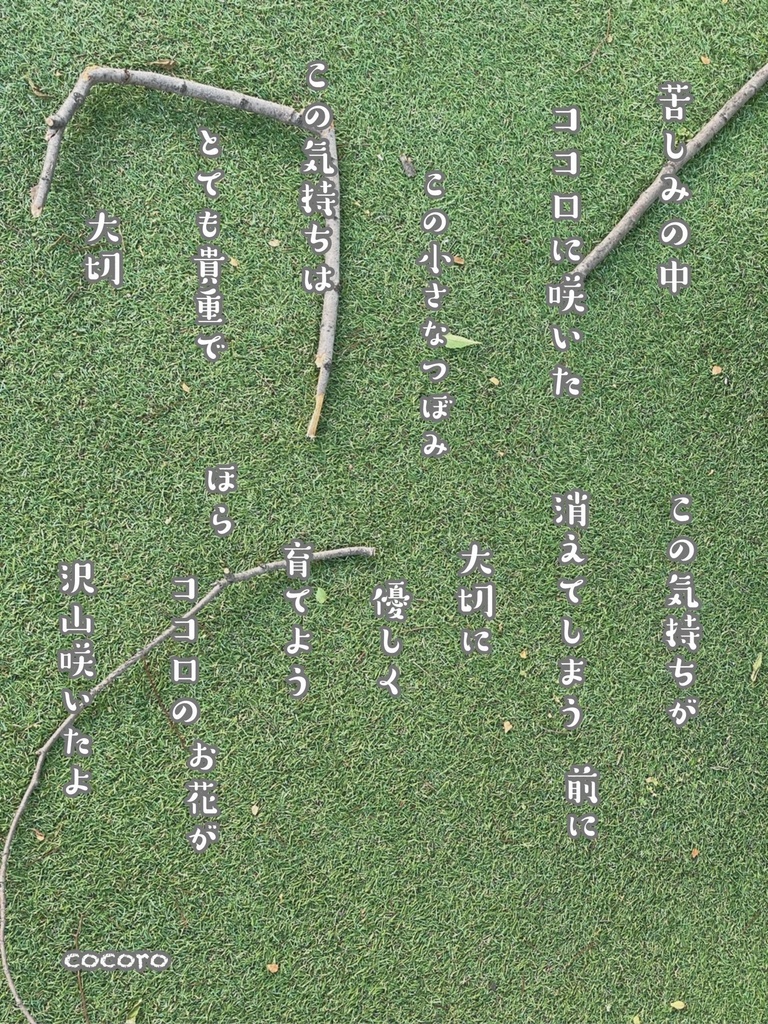 苦しみの中
ココロに咲いた
この小さなつぼみ
この気持ちは
とても貴重で
大切
この気持ちが
消えてしまう 前に
大切に
優しく
育てよう
ほら
ココロの お花が
沢山咲いたよ
cocoro